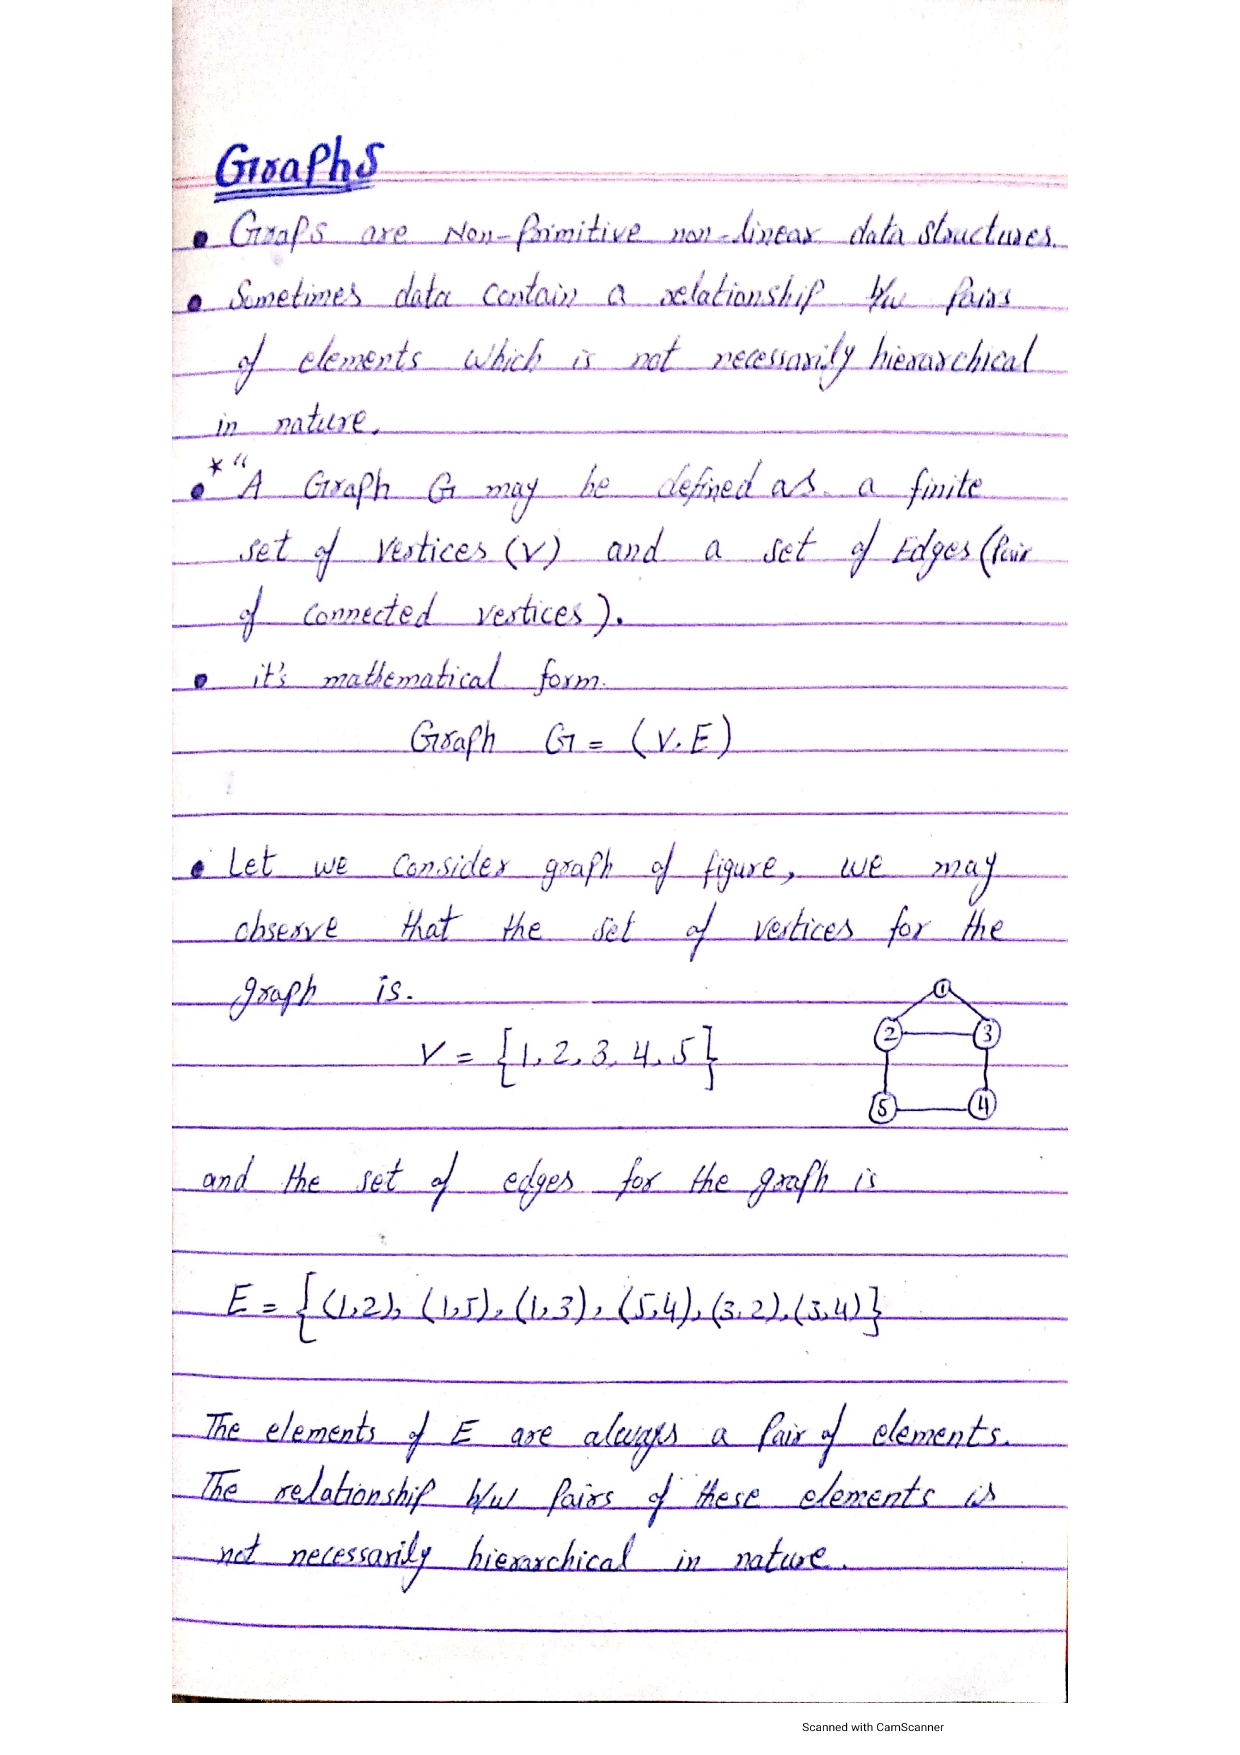 Graphs
• Graps are Non-Primitive non-linear data structures.
• Sometimes data contain a relationship b/w Pairs
of elements which is not necessarily hierarchical
in nature.
• * "A Graph G may be defined as a finite
set of vertices (V) and a set of Edges (Pair
of connected vertices).
• it's mathematical form.
Graph G = (V, E)
• Let we consider graph of figure, we may
observe that the set of vertices for the
graph is.
V = {1, 2, 3, 4, 5}
1
2 3
5 4
and the set of edges for the graph is
E = {(1,2), (1,5), (1,3), (5,4), (3,2), (3,4)}
The elements of E are always a Pair of elements.
The relationship b/w Pairs of these elements is
not necessarily hierarchical in nature.
Scanned with CamScanner